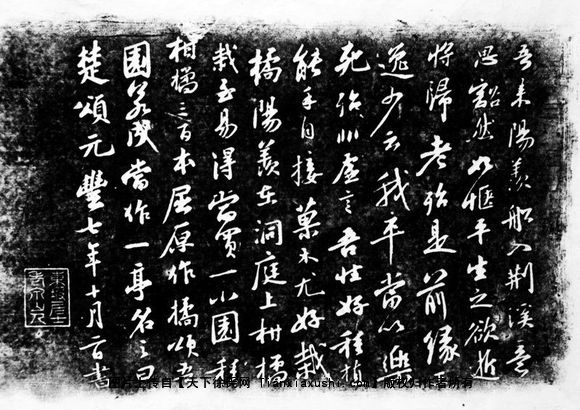 吾來陽羨船入荆溪意
思豁然如愜平生之欲逝
將歸老殆是前緣王
逸少云我卒當以樂
死殆非虛言吾性好種植
能手自接菓木尤好栽
橘陽羨在洞庭上柑橘
栽至易得當買一小園種
柑橘三百本屈原作橘頌吾
園若成當作一亭名之曰
楚頌元豐七年十月二日書
東坡居士
图片上传自【天下徐氏网 tianxiaxushi.com】版权归作者所有